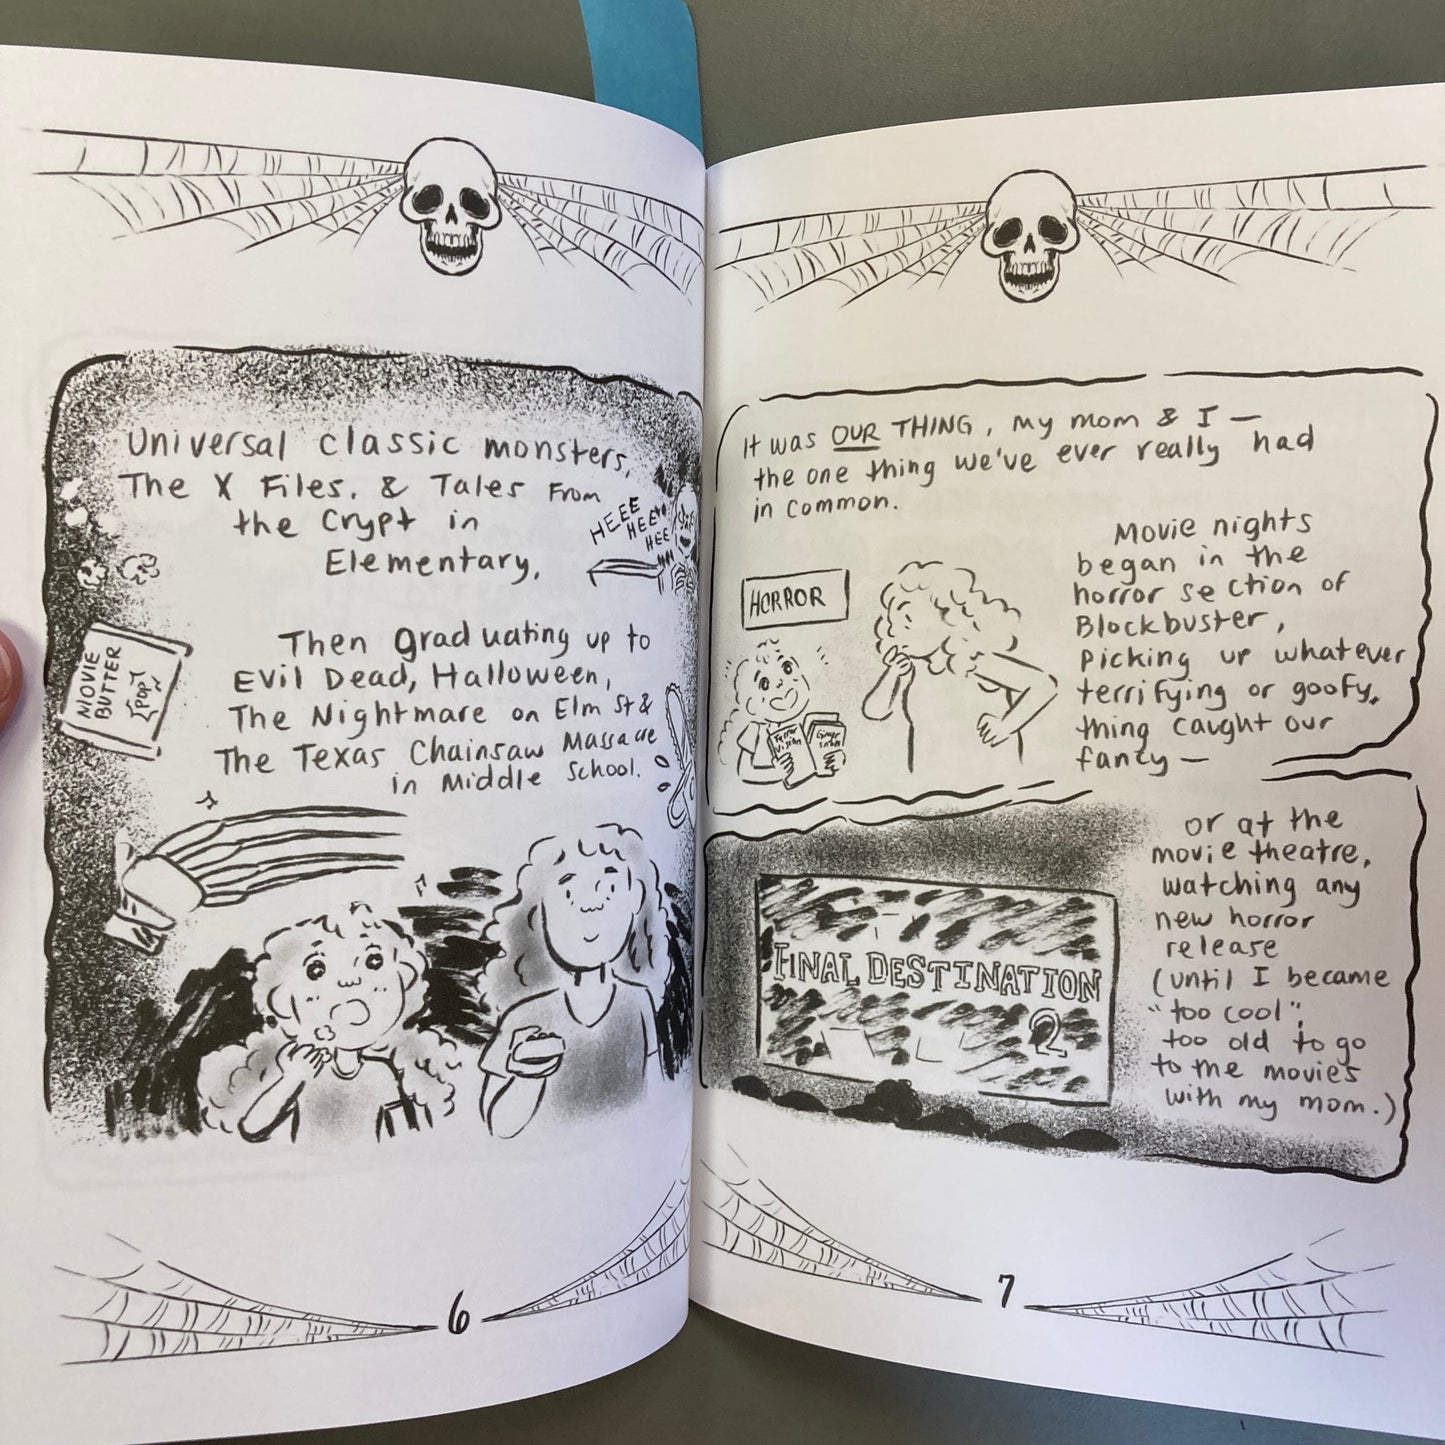 Universal classic monsters,
The X Files, & Tales From
the Crypt in
Elementary,
HEEE
HEE
HEE
MOVIE
BUTTER
POP
Then graduating up to
Evil Dead, Halloween,
The Nightmare on Elm St &
The Texas Chainsaw Massacre
in Middle School.
6
It was OUR THING, my mom & I —
the one thing we've ever really had
in common.
HORROR
Movie nights
began in the
horror section of
Blockbuster,
picking up whatever
terrifying or goofy,
thing caught our
fancy —
FINAL DESTINATION
2
or at the
movie theatre,
watching any
new horror
release
(until I became
"too cool",
too old to go
to the movies
with my mom.)
7